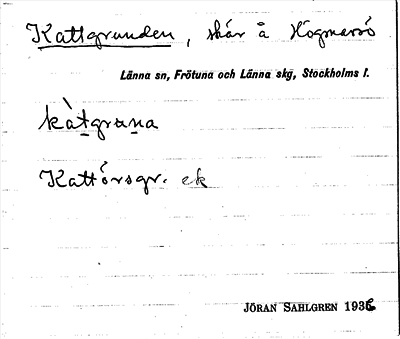 Kattgrunden, skär å Högmarsö
Länna sn, Frötuna och Länna skg, Stockholms l.
kàtgruna
Kattörsgr. ek
JÖRAN SAHLGREN 1936